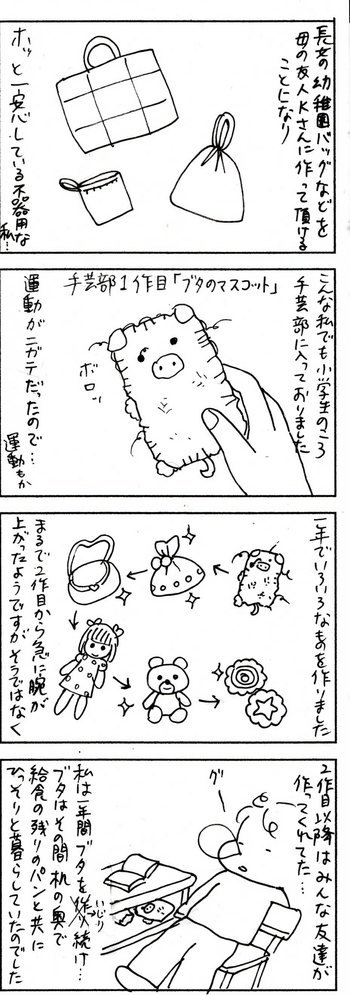 長女の幼稚園バッグなどを
母の友人Kさんに作って頂ける
ことになり
ホッと一安心している不器用な
私…
こんな私でも小学生のころ
手芸部に入っておりました
手芸部1作目「ブタのマスコット」
ボロッ
運動がニガテだったので…
運動もか
一年でいろいろなものを作りました
まるで2作目から急に腕が
上がったようですがそうではなく
2作目以降はみんな友達が
作ってくれてた…
グー
私は一年間ブタを作り続け…
いじり
ブタはその間机の奥で
給食の残りのパンと共に
ひっそりと暮らしていたのでした